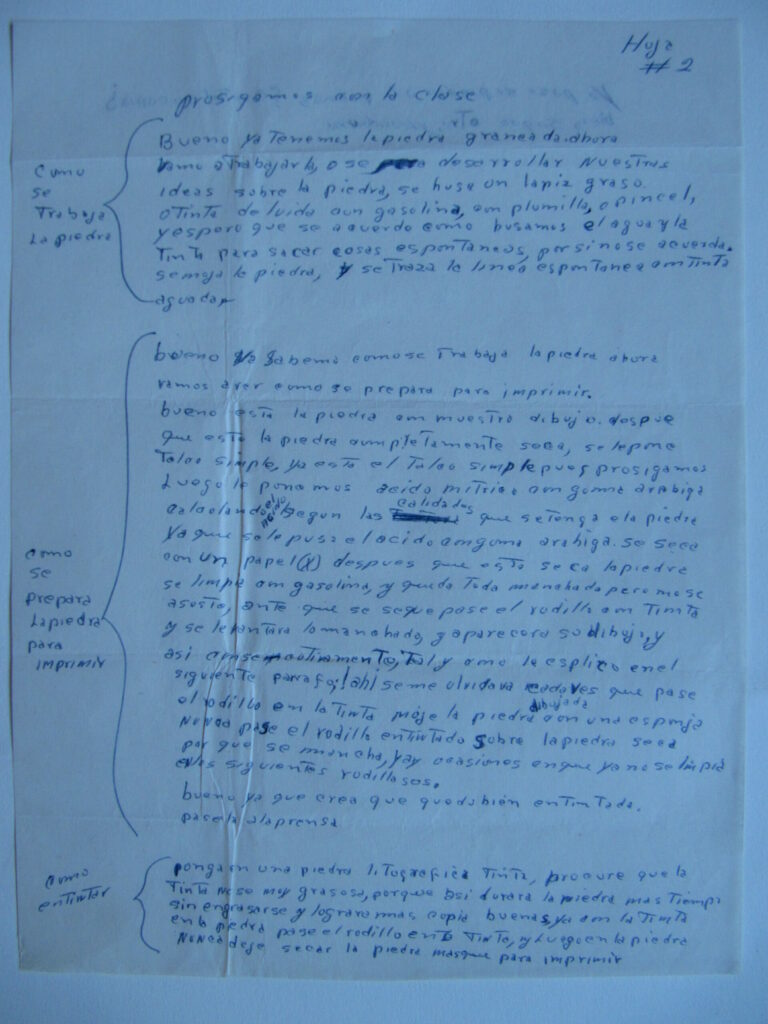 Hoja
# 2
prosigamos con la clase
Como
se
Trabaja
La piedra
Bueno ya Tenemos la piedra graneada. ahora
vamo a Trabajarla, o se desarrollar nuestras
ideas sobre la piedra, se husa un lapiz graso.
o Tinta deluida con gasolina, con plumilla, o pincel,
y espero que se acuerde como busamos el agua y la
Tinta para sacar cosas espontaneas, por si no se acuerda.
se moja la piedra, y se traza la linea espontanea con Tinta
aguada
Como
se
prepara
La piedra
para
imprimir
bueno ya Sabemo como se Trabaja la piedra ahora
vamos aver como se prepara para imprimir.
bueno esta la piedra con nuestro dibujo. despue
que esta la piedra completamente seca, se le pone
Talco simple, ya esta el Talco simple pues prosigamos
Luego le ponemos acido nitrico con goma arabiga
calculando el acido Segun las calidades que se tenga e la piedra
ya que se le puso el acido con goma arabiga. se seca
con un papel (X) despues que esta seca la piedra
se limpia con gasolina, y queda toda manchada pero no se
asuste, ante que se seque pase el rodillo con Tinta
y se levantara lo manchado, y aparecera su dibujo, y
asi consecutivamente, Tal y como le esplico en el
siguiente parrafo, ¡ah! se me olvidava cada ves que pase
el rodillo con la Tinta moje la piedra dibujada con una esponja
NUNCA pase el rodillo entintado sobre la piedra seca
por que se mancha, y ay ocasiones en que ya no se limpia
en los siguientes rodillasos.
bueno ya que crea que quedo bien entintada.
pasela a la prensa
como
entintar
ponga en una piedra litografica Tinta, procure que la
Tinta no se muy grasosa, porque asi durara la piedra mas Tiempo
sin engrasarse y lograra mas copia buenas, ya con la Tinta
en la piedra pase el rodillo en la Tinta, y Luego en la piedra
NUNCA deje secar la piedra mas que para imprimir